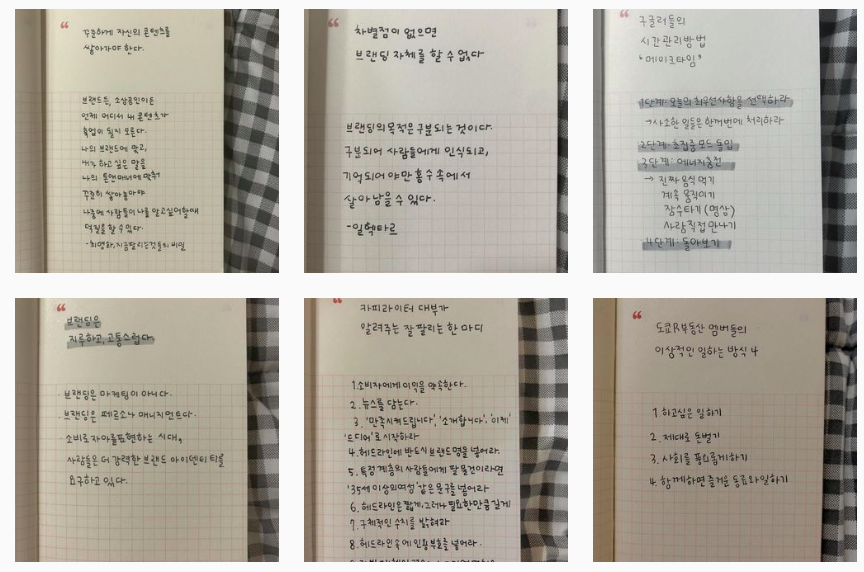 꾸준하게 자신의 콘텐츠를
쌓아가야 한다.
브랜드든, 소상공인이든
언제 어디서 내 콘텐츠가
될지 모른다.
나의 브랜드에 맞고,
내가 하고 싶은 말을
나의 톤앤매너에 맞춰
꾸준히 쌓아놓아야
나중에 사람들이 나를 알고싶어할때
덕질을 할 수 있다.
차별점이 없으면
브랜딩 자체를 할 수 없다
브랜딩의 목적은 구분되는 것이다.
구분되어 사람들에게 인식되고,
기억되어야만 홍수 속에서
살아남을 수 있다.
구글러들의
시간관리방법
"메이크타임"
1단계: 오늘의 최우선사항을 선택하라
→사소한 일들은 한꺼번에 처리하라
2단계: 초집중 모드 돌입
3단계: 에너지충전
→ 진짜 음식 먹기
계속 움직이기
잠수타기 (명상)
사람 직접 만나기
4단계: 돌아보기
브랜딩은
지루하고, 고통스럽다.
브랜딩은 마케팅이 아니다.
브랜딩은 페르소나 매니지먼트다.
소비로 자아를 표현하는 시대,
사람들은 더 강력한 브랜드 아이덴티티를
요구하고 있다.
카피라이터 대부가
알려주는 잘 팔리는 한 마디
1. 소비자에게 이익을 약속한다.
2. 뉴스를 담는다.
3. '만족시켜드립니다', '소개합니다', '이제'
'드디어'로 시작하라
4. 헤드라인에 반드시 브랜드명을 넣어라.
5. 특정 계층의 사람들에게 팔 물건이라면
'35세 이상의 여성' 같은 문구를 넣어라
6. 헤드라인은 짧게, 그러나 필요한만큼 길게
7. 구체적인 수치를 밝혀라
8. 헤드라인 속에 인용부호를 넣어라.
도쿄R부동산 멤버들의
이상적인 일하는 방식 4
1. 하고싶은 일하기
2. 제대로 돈벌기
3. 사회를 풍요롭게하기
4. 함께하면 즐거운 동료와 일하기